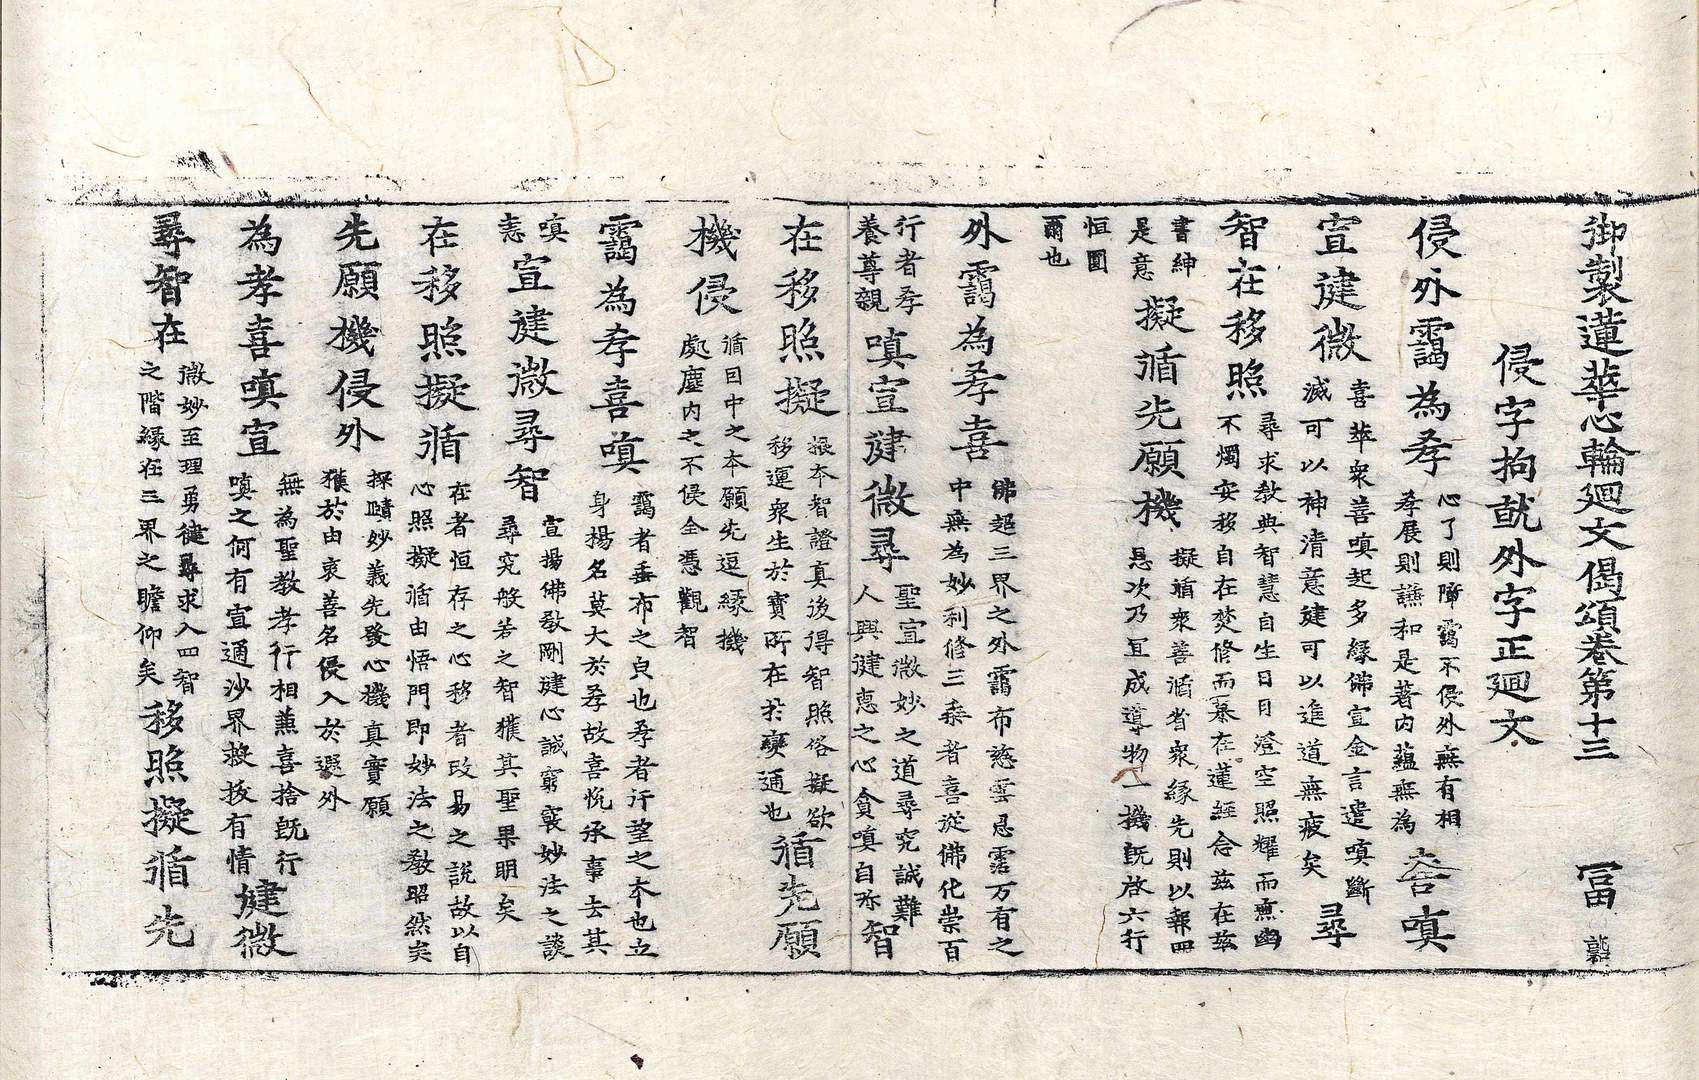 御製蓮華心輪廻文偈頌卷第十三 冨
侵字拘就外字正廻文
侵外靄為孝 心了則障靄不侵外無有相 孝展則讌和是著內蘊無為 喜嗔
宣揵微 喜萃衆善嗔起多緣佛宣金言遣嗔斷 滅可以神清意建可以進道無疲矣 尋
智在移照 尋求教典智慧自生日日澄空照耀而無幽 不燭安移自在焚修而纂在蓮經念茲在茲
書紳 是意 擬循先願機 擬循衆善循省衆緣先則以報四 恩次乃冝成導物一機旣啓六行
恒圓 爾也
外靄為孝喜 佛超三界之外靄布慈雲恩霑万有之 中無為妙利修三乘者喜從佛化崇百
行者孝 養尊親 嗔宣揵微尋 聖宣微妙之道尋究誠難 人興揵惠之心貪嗔自弥 智
在移照擬 振本智證真後得智照俗擬欲 移運衆生於寶所在於變通也 循先願
機侵 循因中之本願先逗緣機 處塵內之不侵全憑觀智
靄為孝喜嗔 靄者垂布之皃也孝者行望之本也立 身揚名莫大於孝故喜悅承事去其
嗔 恚 宣揵微尋智 宣揚佛敎剛揵心誠窮褱妙法之談 尋究般若之智獲其聖果明矣
在移照擬循 在者恒存之心移者改易之說故以自 心照擬循由悟門即妙法之敎昭然矣
先願機侵外 探賾妙義先發心機真實願 獲於由衷善名侵入於遐外
為孝喜嗔宣 無為聖教孝行相兼喜捨旣行 嗔之何有宣通沙界救拔有情 揵微
尋智在 微妙至理勇揵尋求入四智 之階緣在三界之瞻仰矣 移照擬循先